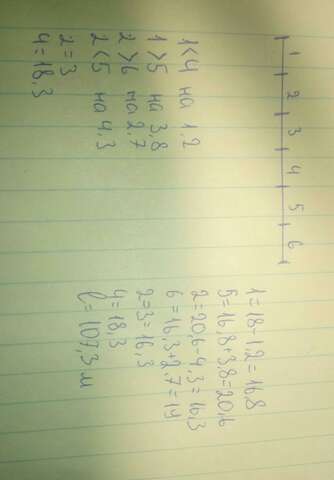 1 2 3 4 5 6
1<4 на 1.2
1>5 на 3,8
2>6 на 2,7
2<5 на 4,3
2=3
4=18,3
1=18-1,2=16,8
5=16,8+3,8=20,6
2=20,6-4,3=16,3
6=16,3+2,7=19
2=3=16,3
4=18,3
l=107,3 м